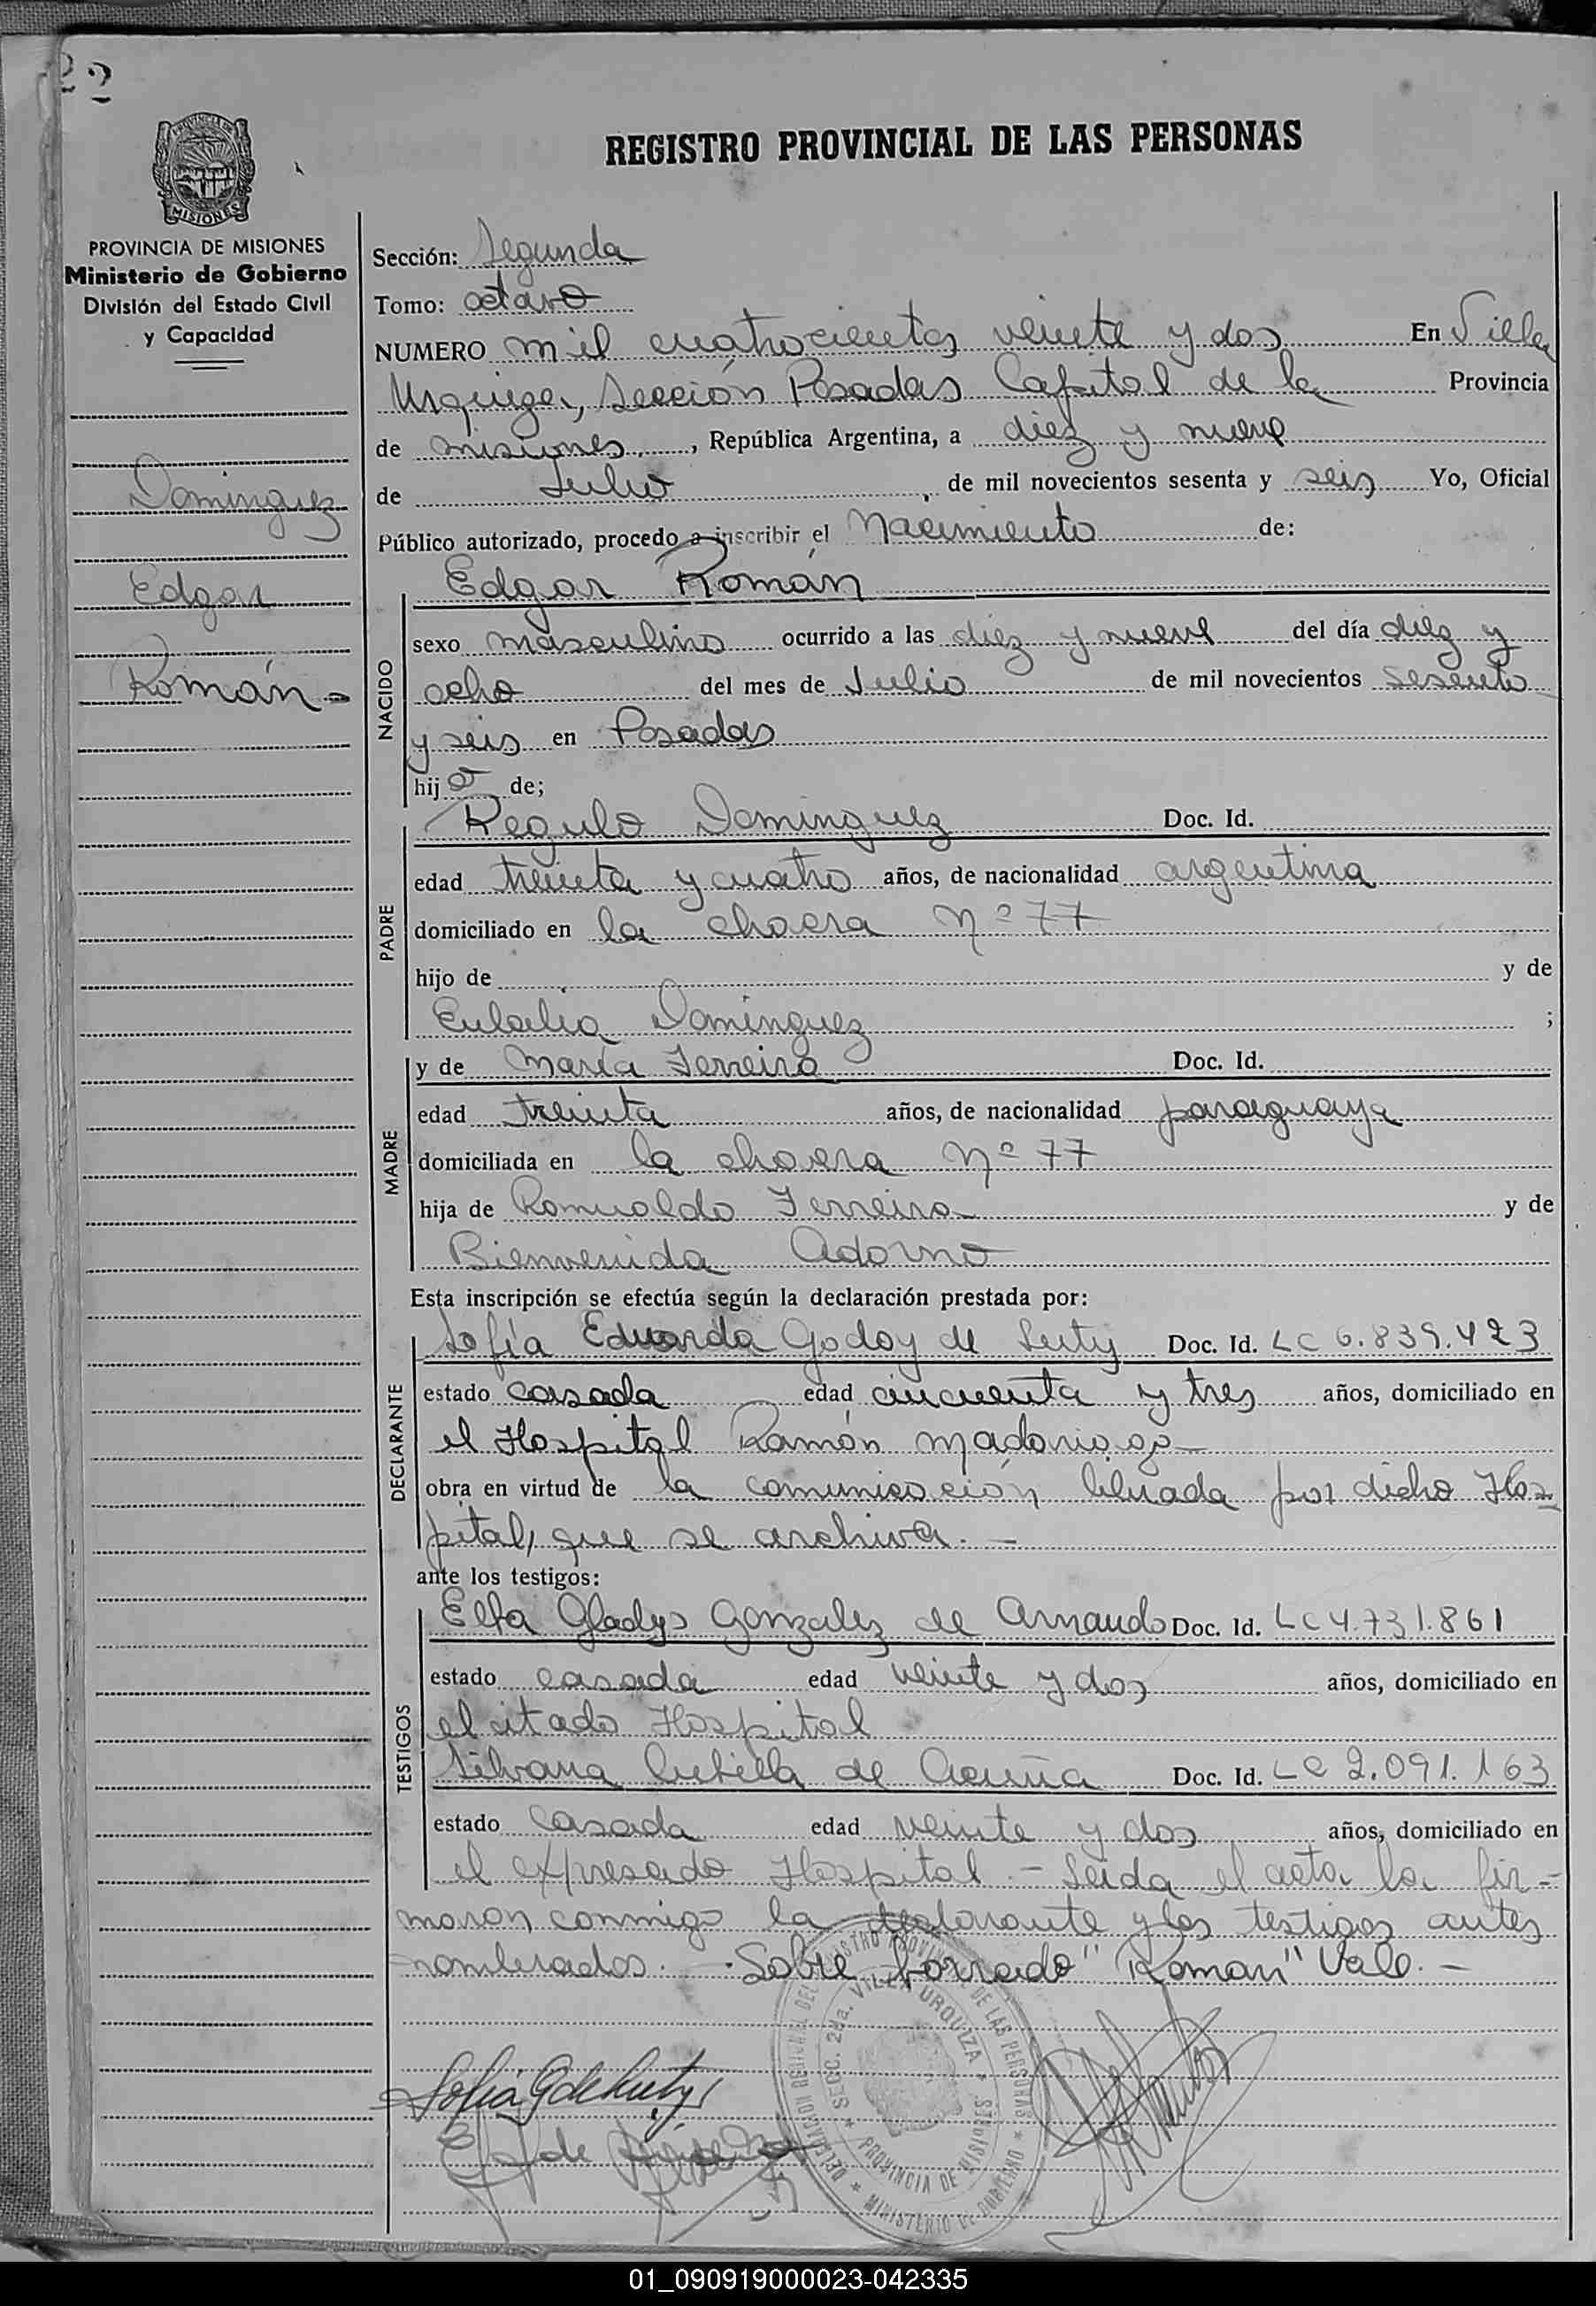 22
PROVINCIA DE
MISIONES
PROVINCIA DE MISIONES
Ministerio de Gobierno
División del Estado Civil
y Capacidad
Dominguez
Edgar
Román =
REGISTRO PROVINCIAL DE LAS PERSONAS
Sección: Segunda
Tomo: octavo
NUMERO mil cuatrocientos veinte y dos En Villa
Urquiza, Sección Posadas Capital de la Provincia
de misiones, República Argentina, a diez y nueve
de Julio, de mil novecientos sesenta y seis Yo, Oficial
Público autorizado, procedo a inscribir el Nacimiento de:
Edgar Román
NACIDO
sexo masculino ocurrido a las diez y nueve del día diez y
ocho del mes de Julio de mil novecientos sesenta
y seis en Posadas
hijo de;
PADRE
Regulo Dominguez Doc. Id.
edad treinta y cuatro años, de nacionalidad argentina
domiciliado en la chacra Nº 77
hijo de y de
Eulalia Dominguez ;
MADRE
y de María Ferreira Doc. Id.
edad treinta años, de nacionalidad paraguaya
domiciliada en la chacra Nº 77
hija de Romualdo Ferreira y de
Bienvenida Adorno
Esta inscripción se efectúa según la declaración prestada por:
DECLARANTE
Sofía Eduarda Godoy de Doc. Id. LC 6.839.423
estado casada edad cincuenta y tres años, domiciliado en
el Hospital Ramón Madariaga
obra en virtud de la comunicación librada por dicho Hos=
pital, que se archiva. —
ante los testigos:
TESTIGOS
Elfa Gladys Gonzalez de Arnaudo Doc. Id. LC 4.731.861
estado casada edad veinte y dos años, domiciliado en
el citado Hospital
Silvana de Acuña Doc. Id. LC 2.091.163
estado casada edad veinte y dos años, domiciliado en
el expresado Hospital. – Leida el acta la fir=
maron conmigo la declarante y los testigos antes
nombrados. Sobre borrado "Roman" Vale. –
DELEGACION DEL REGISTRO PROVINCIAL DE LAS PERSONAS
SECC. 2da. VILLA URQUIZA
PROVINCIA DE MISIONES
MINISTERIO DE GOBIERNO
01_090919000023-042335